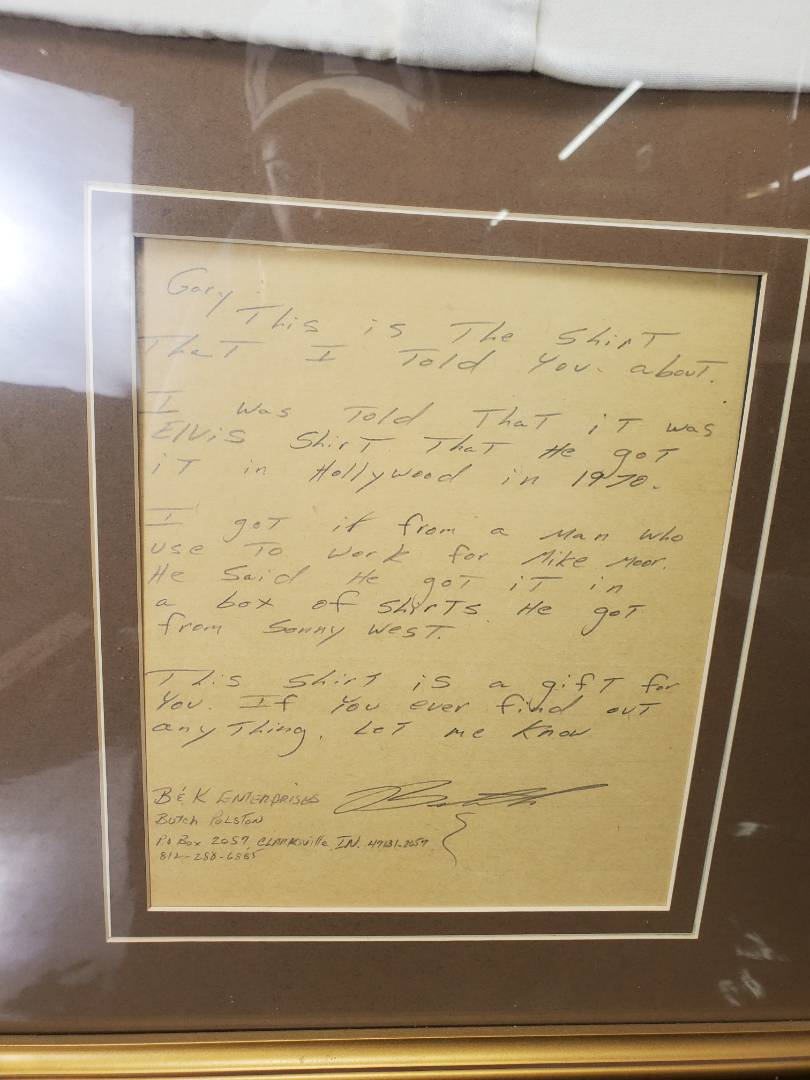 Gary
This is The Shirt
That I Told You about.
I was Told That iT was
Elvis Shirt That He goT
iT in Hollywood in 1970.
I goT it from a Man who
use To work for Mike Moor.
He Said He goT iT in
a box of ShirTs He goT
from Sonny WesT.
This ShirT is a gifT for
You. If You ever find ouT
anyThing. LeT me Know
B & K ENTERPRISES
Butch Polston
Po Box 2057 CLARKsville IN. 47131-2057
812-288-